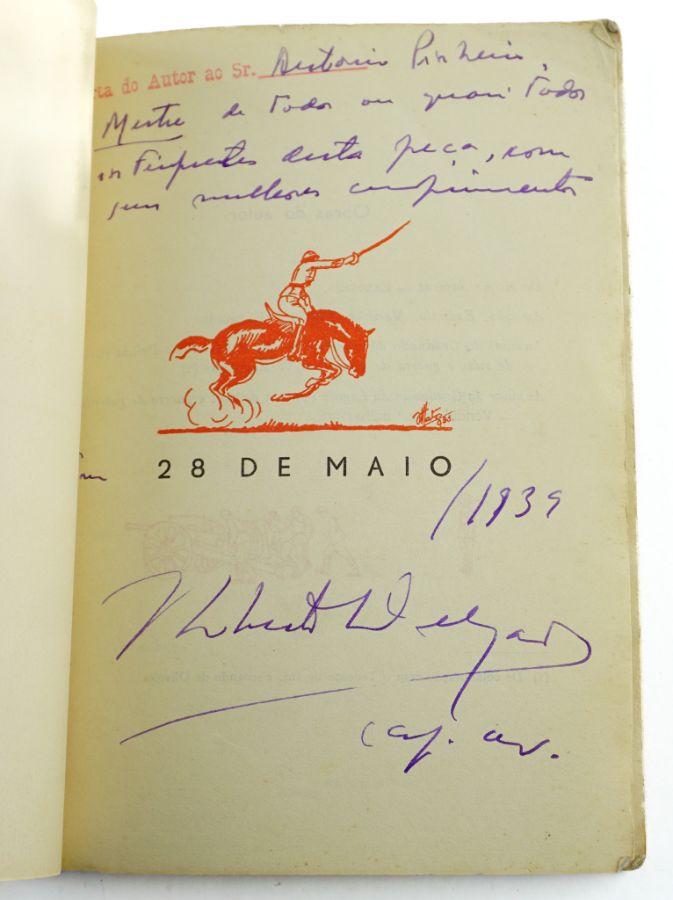 rta do Autor ao Sr. Antonio Pinheiro,
Mestre de todos ou quasi todos
interpretes desta peça, com
seus melhores cumprimentos
28 DE MAIO
/1939
Humberto Delgado
cap. av.